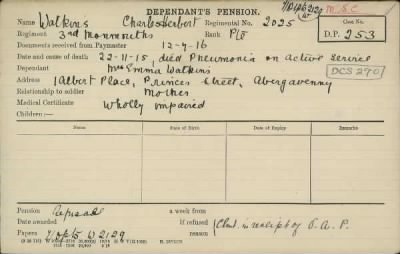 DEPENDANT'S PENSION.
Name Watkins Charles Herbert Regimental No. 2025
M.S.C.
Case No.
Regiment 3rd Monmouths Rank Pte
D.P. 253
Documents received from Paymaster 12-7-16
Date and cause of death 22-11-15, died Pneumonia on Active Service
DCS 270
Dependant Mrs Emma Watkins
1 Albert Place, Princes Street, Abergavenny
Relationship to soldier Mother
Medical Certificate Wholly impaired
Children :—
Name Date of Birth Date of Expiry Remarks
Pension Refused a week from
Date awarded If refused reason Clmt. in receipt of O.A.P.
Papers W 2129